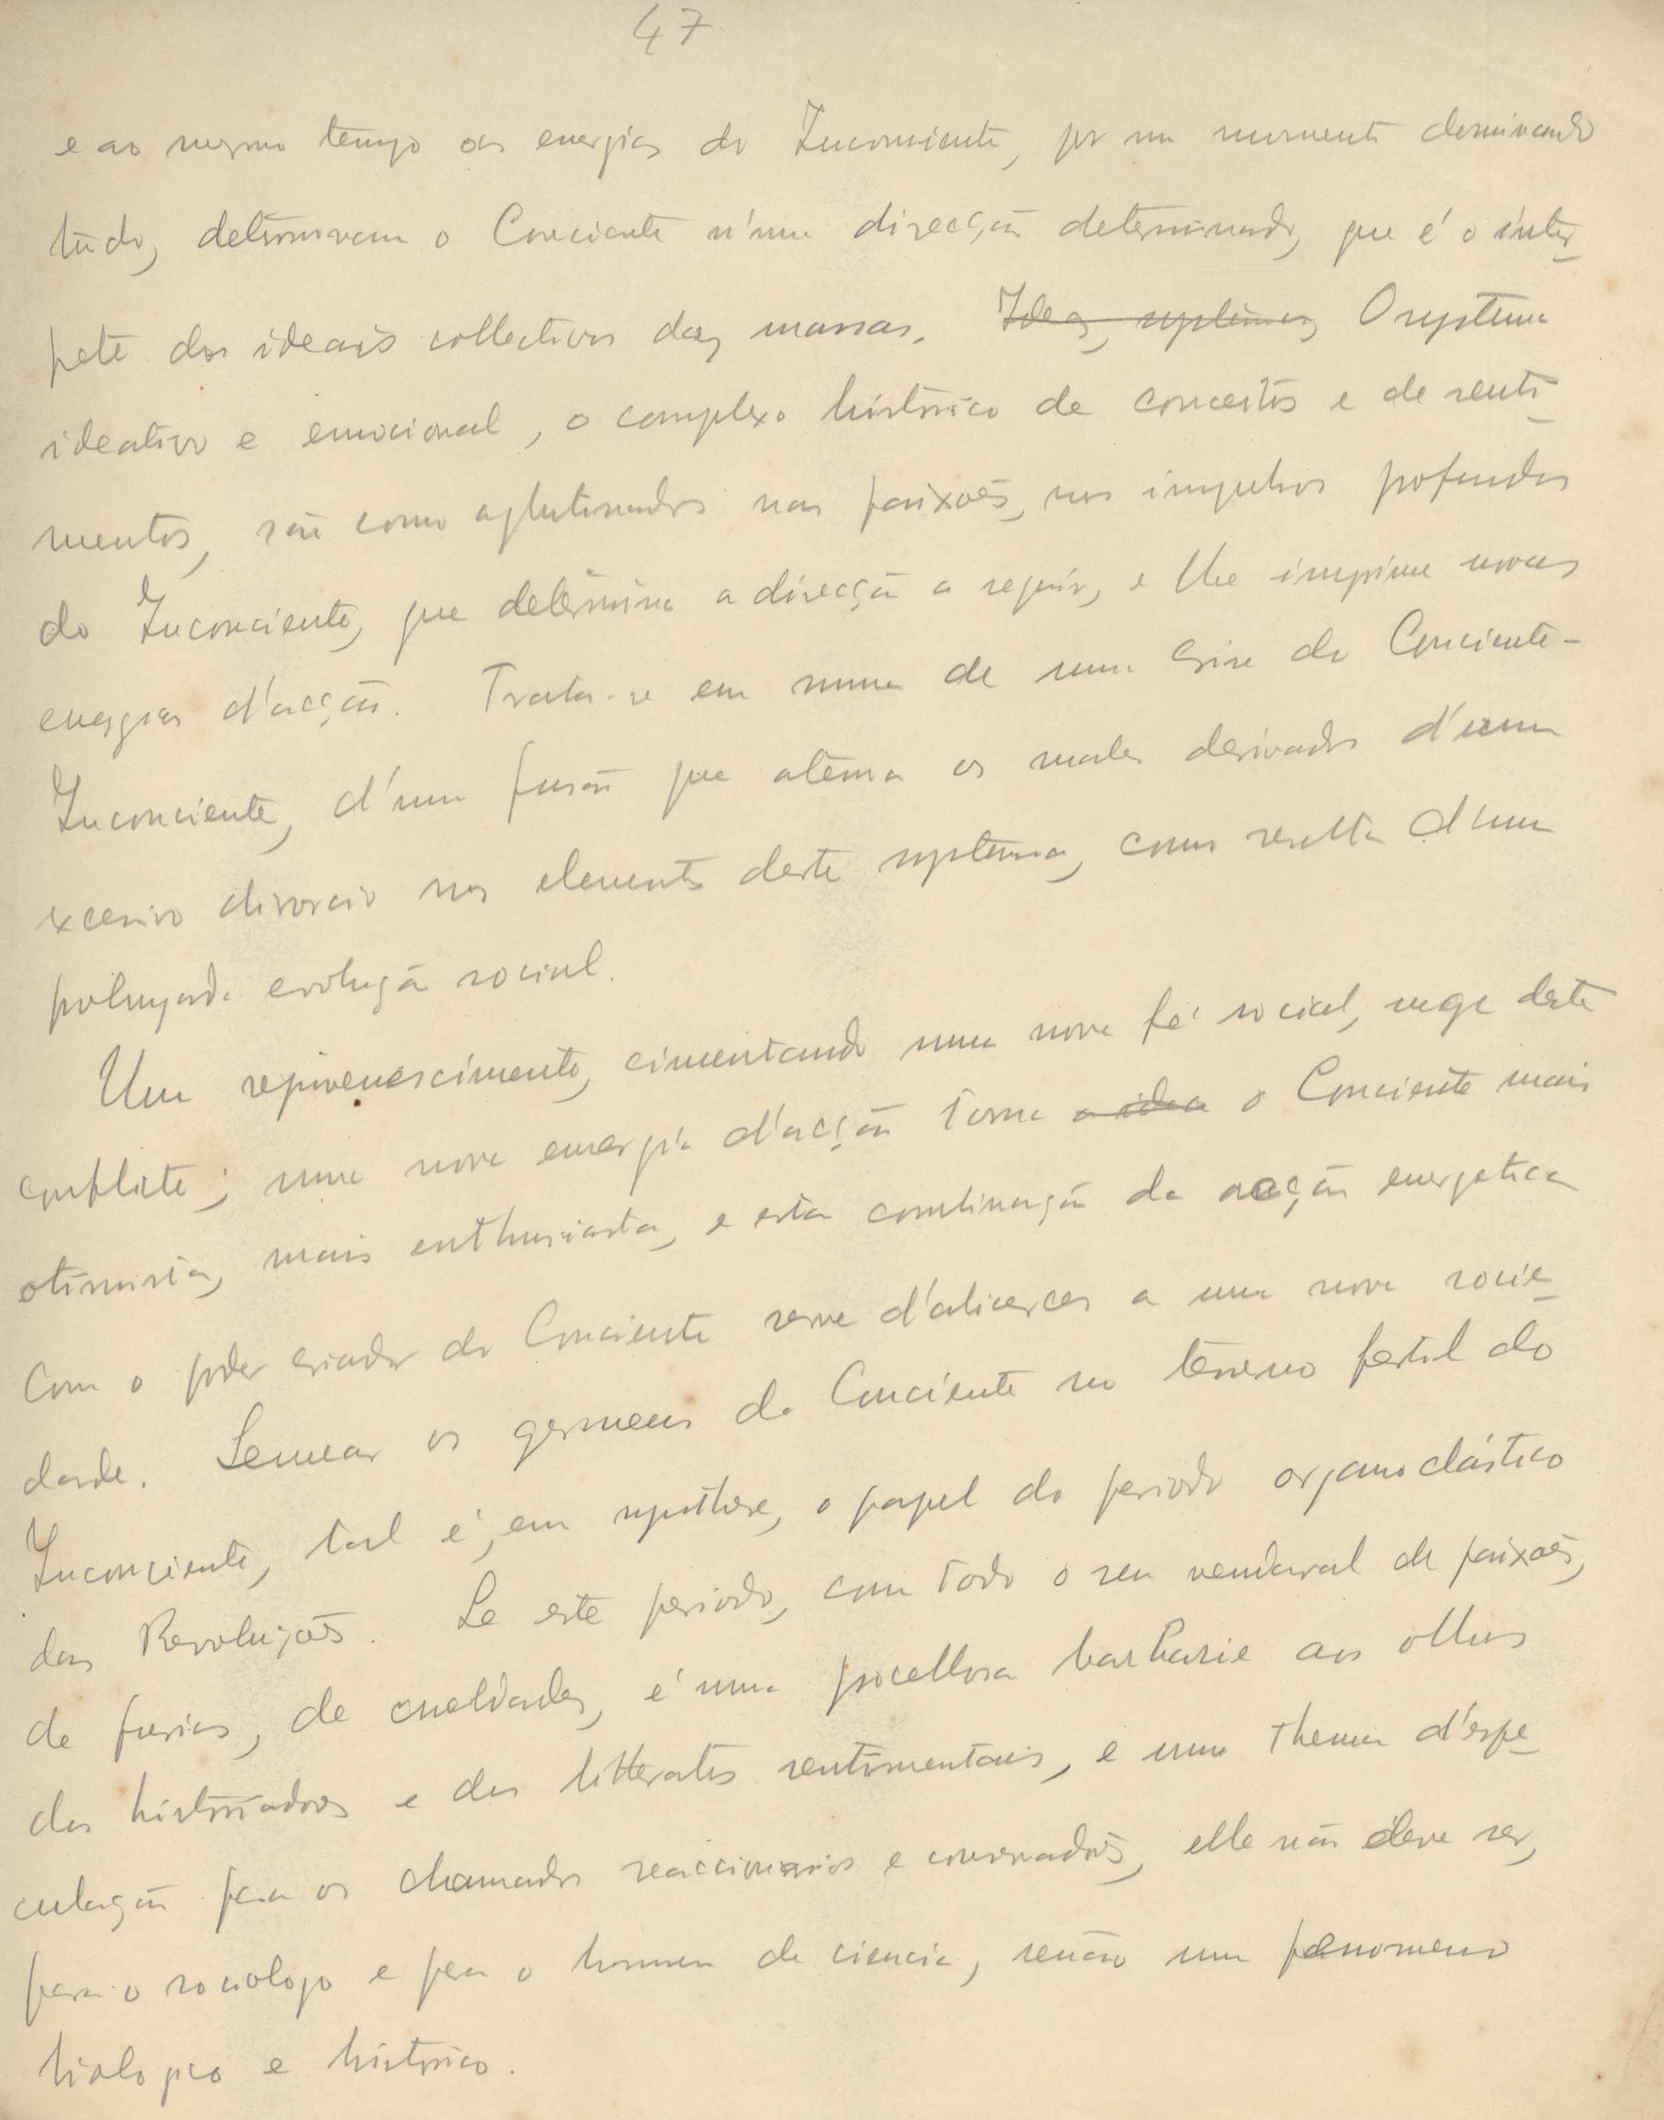 47
e ao mesmo tempo as energias do Inconsciente, por um momento dominando
tudo, determinam o Conciente n'uma direcção determinada, que é o intér-
prete dos ideais collectivos das massas. ~~Ideas, systemas,~~ O systema
ideativo e emocional, o complexo histórico de conceitos e de senti-
mentos, são como aglutinados nas paixões, nos impulsos profundos
do Inconciente, que determina a direcção a seguir, e lhe imprime novas
energias d'acção. Trata-se em suma de uma crise do Conciente-
Inconciente, d'uma fusão que atenua os males derivados d'um
excesivo divorcio nos elementos deste systema, como resulta d'uma
prolongada evolução social.
Um rejuvenescimento, cimentando uma nova fé social, surge deste
conflicto; uma nova energia d'acção torna ~~a idea~~ o Conciente mais
otimista, mais enthusiasta, e esta combinação da acção energetica
com o poder criador do Conciente serve d'alicerces a uma nova socie-
dade. Semear os germens do Conciente no terreno fertil do
Inconciente, tal é, em synthese, o papel do periodo organoclástico
das Revoluções. Se este periodo, com todo o seu vendaval de paixões,
de furias, de crueldades, é uma procellosa barbarie aos olhos
dos historiadores e dos litteratos sentimentais, e uma thema d'espe-
culação para os chamados reaccionarios e conservadores, elle não deve ser,
para o sociologo e para o homem de ciencia, senão um phenomeno
biologico e historico.